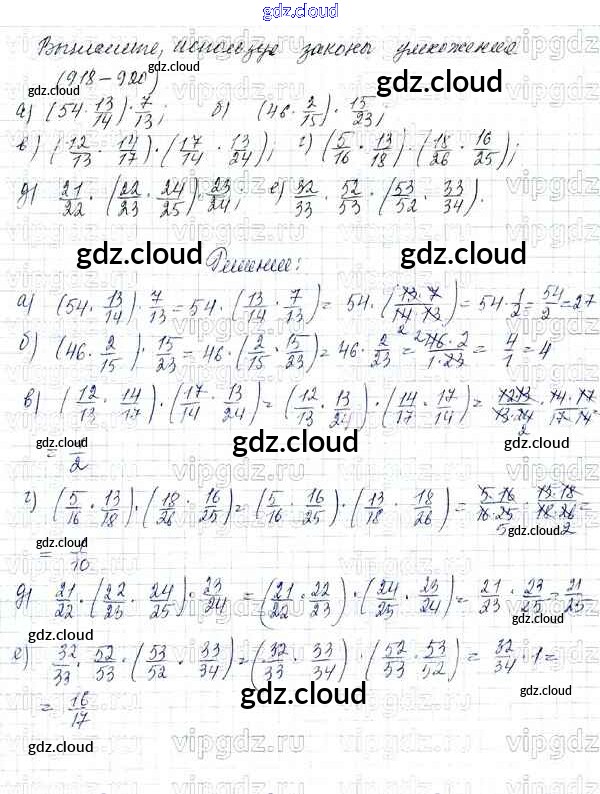 gdz.cloud
Вычислите, используя законы умножения
(918-920)
gdz.cloud
а) (54 · 13/14) · 7/13; б) (46 · 2/15) · 15/23;
в) (12/13 · 14/17) · (17/14 · 13/24); г) (5/16 · 13/18) · (18/26 · 16/25);
д) 21/22 · (22/23 · 24/25) · 23/24; е) 32/33 · 52/53 · (53/52 · 33/34).
gdz.cloud Решение: gdz.cloud
а) (54 · 13/14) · 7/13 = 54 · (13/14 · 7/13) = 54 · (13·7/14·13) = 54 · 1/2 = 54/2 = 27
б) (46 · 2/15) · 15/23 = 46 · (2/15 · 15/23) = 46 · 2/23 = 46·2/1·23 = 4/1 = 4
в) (12/13 · 14/17) · (17/14 · 13/24) = (12/13 · 13/24) · (14/17 · 17/14) = 12·13/13·24 · 14·17/17·14 =
gdz.cloud gdz.cloud gdz.cloud
= 1/2
г) (5/16 · 13/18) · (18/26 · 16/25) = (5/16 · 16/25) · (13/18 · 18/26) = 5·16/16·25 · 13·18/18·26 =
gdz.cloud gdz.cloud
= 1/10
д) 21/22 · (22/23 · 24/25) · 23/24 = (21/22 · 22/23) · (24/25 · 23/24) = 21/23 · 23/25 = 21/25
gdz.cloud gdz.cloud
е) 32/33 · 52/53 · (53/52 · 33/34) = (32/33 · 33/34) · (52/53 · 53/52) = 32/34 · 1 =
gdz.cloud gdz.cloud
= 16/17
gdz.cloud gdz.cloud